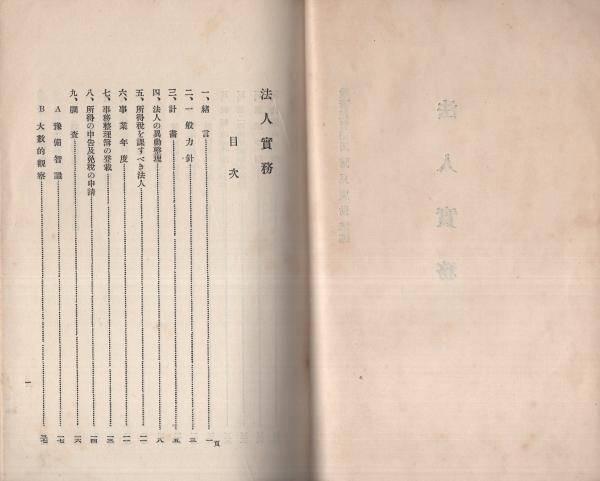 法人實務
目次
頁
一、緒言 一
二、一般方針 三
三、計畫 五
四、法人の異動整理 八
五、所得稅を課すべき法人 一一
六、事業年度 一一
七、事務整理簿の登載 一三
八、所得の申告及免稅の申請 一四
九、調査 一六
A 豫備智識 一七
B 大數的觀察
一
法人實務